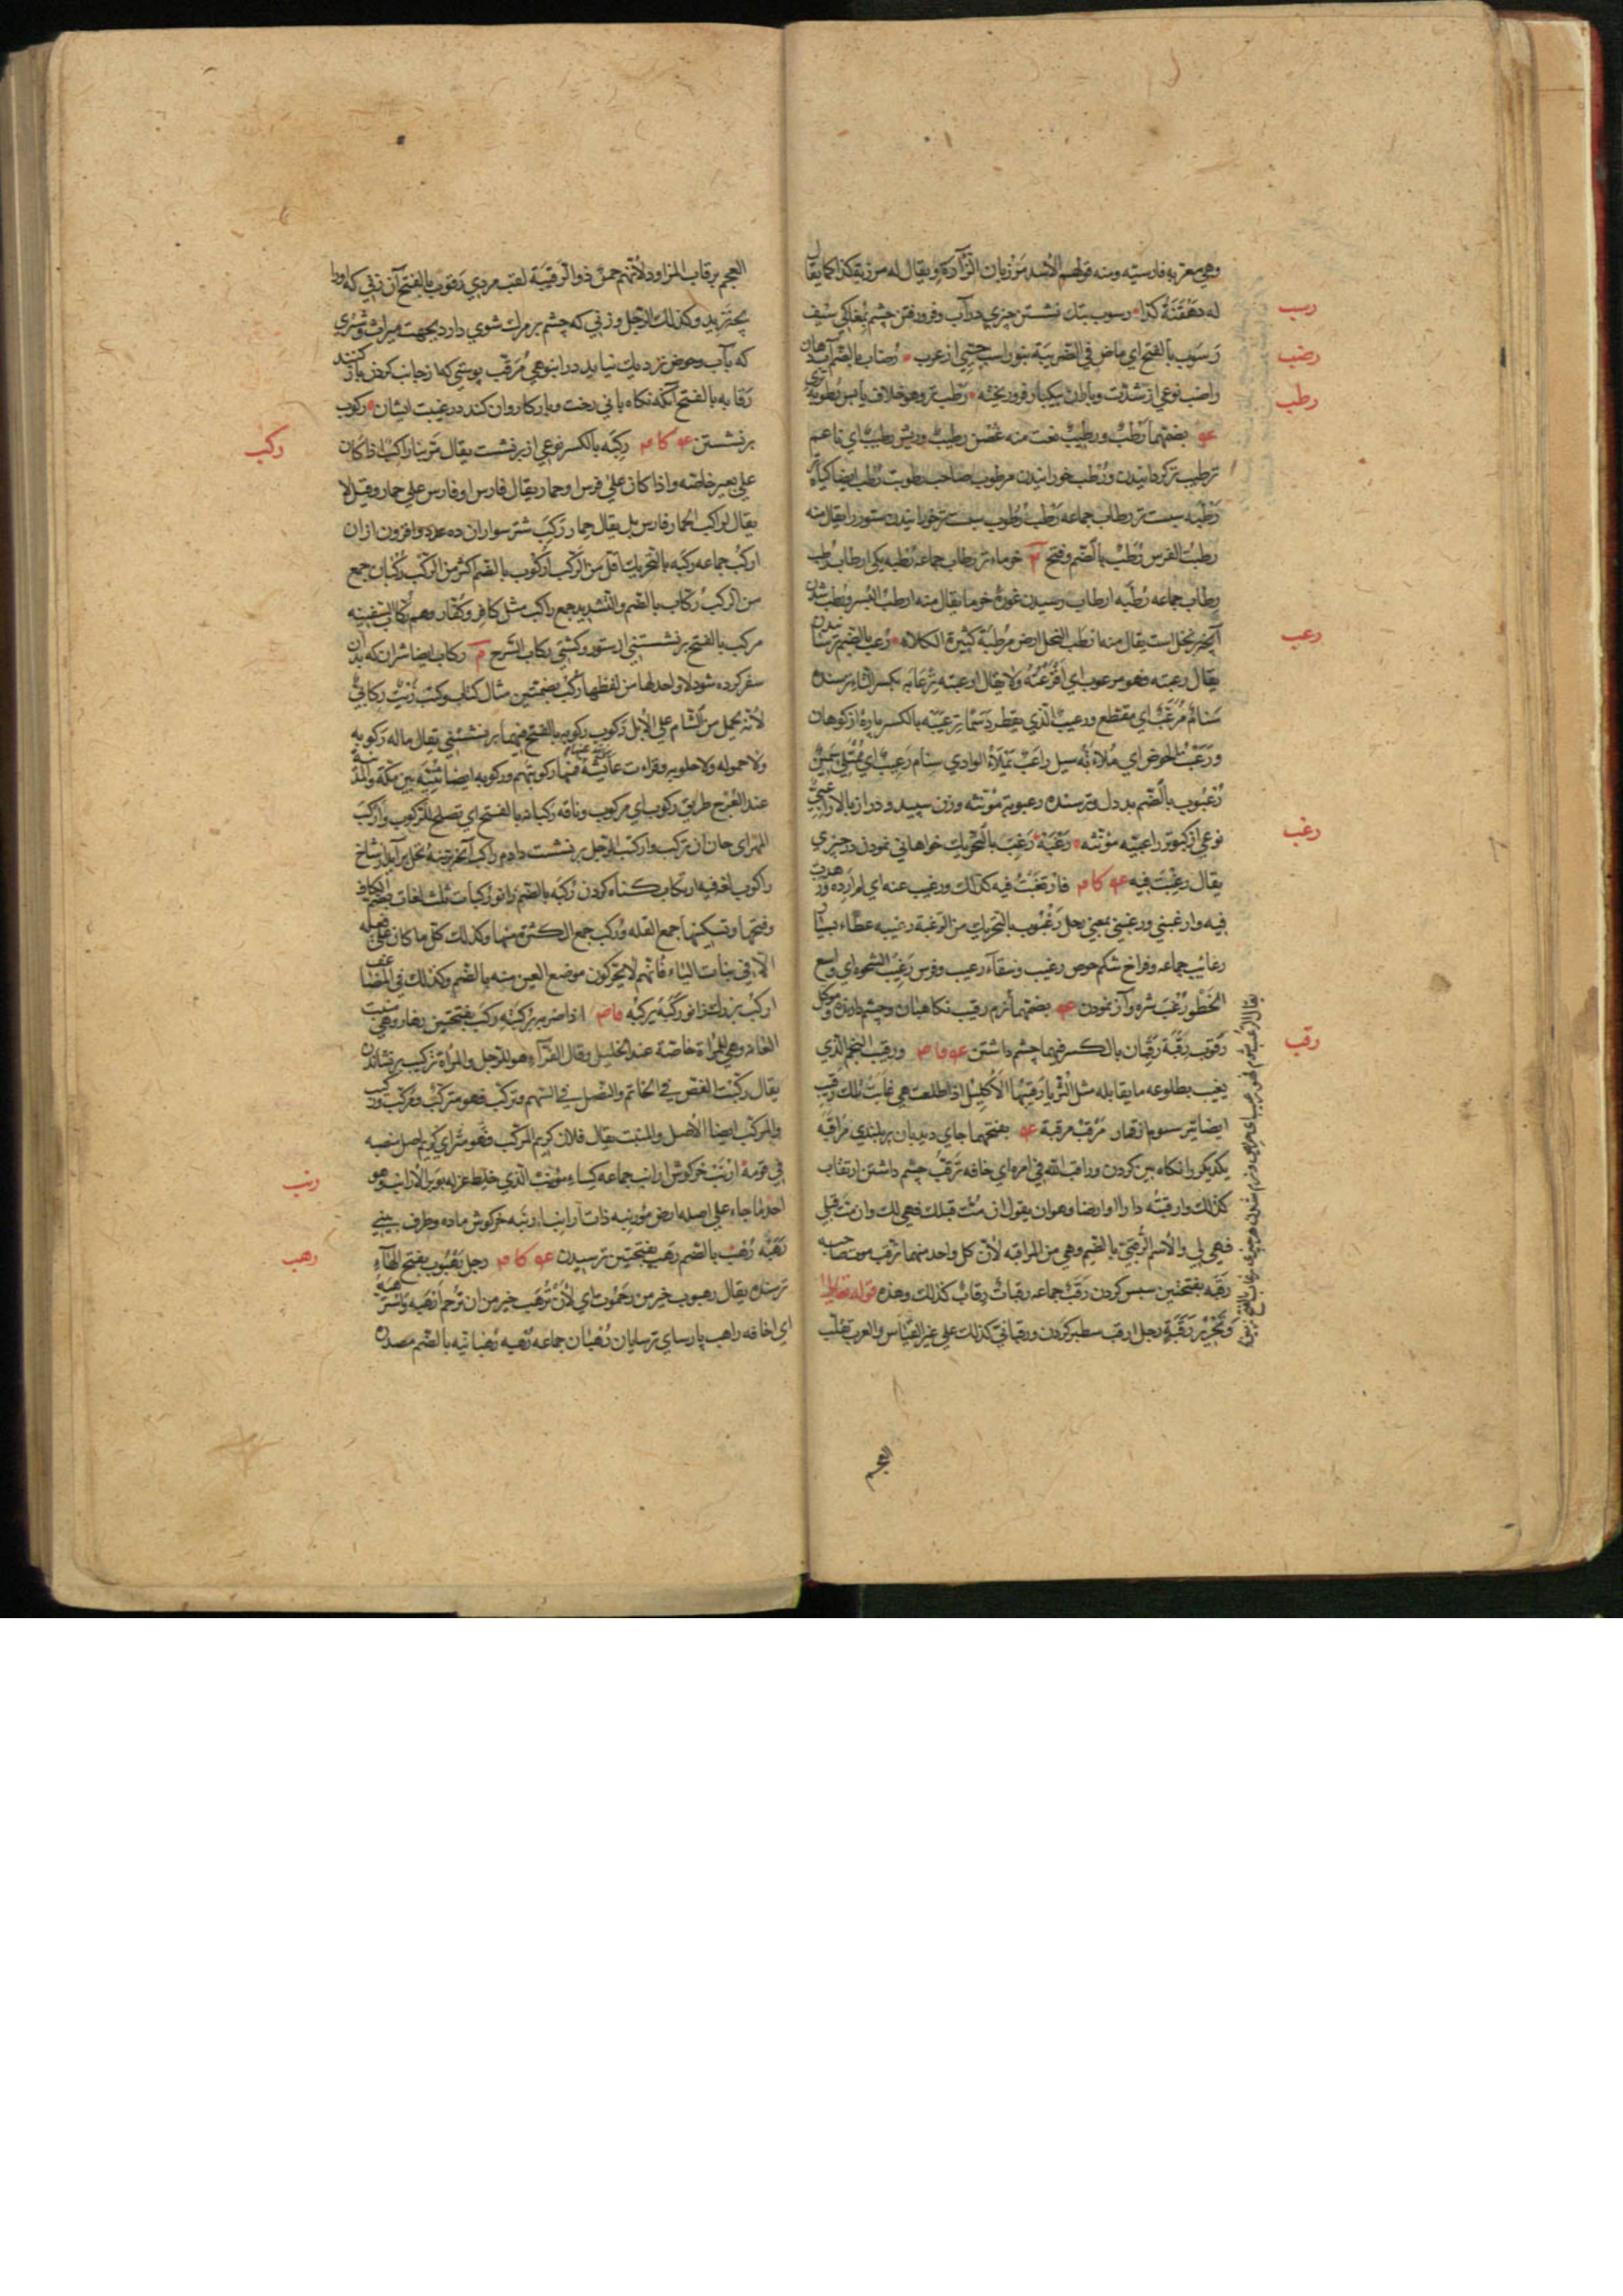 وهي معربه فارسيه ومنه قولهم للاسد مَرْزبان الزَّأرة ويقال له مرزبه كذا كما يقال
له دَهْقَنَةُ كذا رسوب بتك نشستن چيزي در آب وفرو رفتن چشم بمغاكي سيف
رسب
رَسُوب بالفتح اي ماض في الضريبة بنو راسب حيي از عرب رُضاب بالضم آب دهان
رضب
راضب نوعي از سدرست وباران بيكبار فرو ريخته رَطْب تر وهو خلاف يابس رُطوبة تري
رطب
بضمهما رَطْبٌ ورطيبٌ نعت منه غُصْن رطيبٌ وريش رطيبٌ اي ناعم
ترطيب تر كردانيدن ورُطَب خورانيدن مرطوب صاحب رطوبت رُطْب ايضا كياه تر
رَطْبه سبست تر رطاب جماعه رَطْب رُطوب سبست تر خورانيدن ستور را يقال منه
رطبتُ الفرس رُطَبْ بالضم وفتح خرماء تر رطاب جماعه رُطَبه يكي ارطاب رُطب
رطاب جماعه رُطَبه ارطاب رسيدن غوره خرما يقال منه ارطب البسر ورُطب شدن
آنچه بر نخل است يقال منه ارطب النخل ارض مُرطِبَة كثيرة الكلاء رُعب بالضم ترسانيدن
رعب
يقال رعبته فهو مرعوب اي افزعْتُه ولا يقال ارعبته تِرْعابه بكسر التاء ترسنده
سَنامٌ مُرَعَّبٌ اي مقطع ورعيب الذي يقطر دَسَمًا ترعيبه بالكسر پاره از كوهان
ورَعَبْتُ الحوض اي ملأته سيل راعب يملأ الوادي سنام رَعيبٌ اي ممتلئ سمين
رُعبوب بالضم بددل وترسنده رعبوبة مؤنثه وزن سپيد ودراز بالا راعبي
نوعي از كبوتر راعبيه مؤنثه رَغْبَة رَغَبَ بالتحريك خواهاني نمودن در چيزي
رغب
يقال رغبت فيه فارتغبتُ فيه كذلك ورغب عنه اي لم اُرِده
فيه وارغبني ورغبني بمعني رجل رَغَبُوب بالتحريك من الرغبة رغيبه عطاء بسيار
رغائب جماعه وفراخ شكم حوض رغيب وسقاء رغيب وفرس رَغِيبُ الشحوه اي واسع
الخَطْو رُغْبَ شره وآز نمودن بضمهما لزم رقيب نكاهبان وچشم دارنده وموكل
رَقوب رِقْبَة رِقْبان بالكسر فيهما چشم داشتن ورقيب النجم الذي
رقب
يغيب بطلوعه ما يقابله مثل الثريا رقيبها الاكليل اذا طلعت هي غابت تلك رقيب
ايضا تير سوم از قمار مَرْقَب مرقبة بفتحهما جاي ديدبان بر بلندي مُراقبه
يكديكر را نكاه بين كردن وراقب الله في امره اي خافه تَرَقُّب چشم داشتن ارتقاب
كذلك وارقبتُه دارا او ارضا وهو ان يقول ان مُتُّ قبلك فهي لك وان مت قبلي
فهي لي والاسم الرُّقبيٰ بالضم وهي من المراقبه لان كل واحد منهما يرقب موت صاحبه
رَقَبه بفتحتين سپس كردن رَقَب جماعه رقبات رِقاب كذلك وهذه قوله تعالٰي
وتَحْرِيْر رَقَبَةٍ رجل ارقب سطبر كردن ورقباني كذلك علي غير القياس والعرب تلقب
العجم
العجم برقاب المزاود لانهم حمر ذو الرُّقَيبَة لقب مردي رَقوب بالفتح آن زني كه اورا
بچه نزيد وكذلك الرجل وزني كه چشم بر مرك شوي دارد بجهت ميراث وشتري
كه بآب وحوض نزديك نيايد در انبوهي مُرَقَّب پوستي كه از جانب كردن باز كنند
رَقابه بالفتح آنكه نكاه باني رخت وبار كاروان كند در غيبت ايشان ركوب
بر نشستن رِكبَه بالكسر نوعي از برنشست يقال مَرّ بنا راكبٌ اذا كان
ركب
علي بعير خاصّة واذا كان علي فرس او حمار يقال فارس او فارس علي حمار وقيل لا
يقال لراكب الحمار فارس بل يقال حمار رَكْبٌ شتر سواران ده عدد وافزون از ان
اركُب جماعه رَكَبَه بالتحريك اقل من الركب اُركُوب بالضم اكثر من الركب رُكبان جمع
من الركب رُكّاب بالضم والتشديد جمع راكب مثل كافر وكفّار وهم رُكّاب السفينه
مركب بالفتح بر نشستني از ستور وكشتي ركاب السَّرج م ركاب ايضا شتران كه بدان
سفر كرده شود لا واحد لها من لفظها رُكُب بضمتين مثال كتاب وكتب زَيتٌ رِكابيٌّ
لانه يحمل من الشام علي الابل رَكوب رَكوبه بالفتح فيهما بر نشستني يقال ماله رَكوبه
ولا حموله ولا حلوبه وقراءت عايشة فمنها ركوبتهم وركوبه ايضا ثنيه بين مكة والمدينة
عند العَرْج طريق ركوب اي مركوب وناقه ركبانه بالفتح اي تصلح للركوب واَركَبَ
المُهر اي حان ان يركب واركبت الرجل برنشست دادم راكب آنچه تنه نخل برآيد از شاخ
راكوب لغة فيه ارتكاب كناه كردن رُكبَه بالضم زانو رُكبات ثلث لغات بضم الكاف
وفتحها وتسكينها جمع القله ورُكَب جمع الكثرة منها وكذلك كل ما كان علي فعله
الا في بنات الياء فانهم لا يحركون موضع العين منه بالضم وكذلك في المضاعف
اركَبُ بزرك زانو رَكَبَه يركبُه اذا ضربه برُكبتِه ركَب بفتحتين زهار وهي منبت
العانه وهي للمراة خاصة عند الخليل وقال الفراء هو للرجل والمراة تركيب نشاندن
يقال ركّبت الفصّ في الخاتم والنصل في السهم فتركب فهو متركّبٌ ومُركَّبٌ وركيب
والمركّب ايضا الاصل والمنبت يقال فلان كريم المركّب فهو مَثَل اي كريم اصل منصبه
في قومه ارنَبْ خركوش ارانب جماعه كساء مُؤرنَبٌ الذي خلط غزله بوبر الارانب وهو
رنب
احد ما جاء علي اصله ارض مؤرنبه ذات ارانب ارنبه خركوش ماده وطرف بيني
رَهْبَة رُهْب بالضم رَهَب بفتحتين ترسيدن رجل رَهَبُوب بفتح الهاء
رهب
ترسنده يقال رهبوت خير من رَحَمُوت اي لان تُرْهَب خير من ان تُرحم اَرهَبَه واسترهبه
اي اخافه راهب پارساي ترسايان رُهبان جماعه رَهبه رهبانيه بالضم مصدره